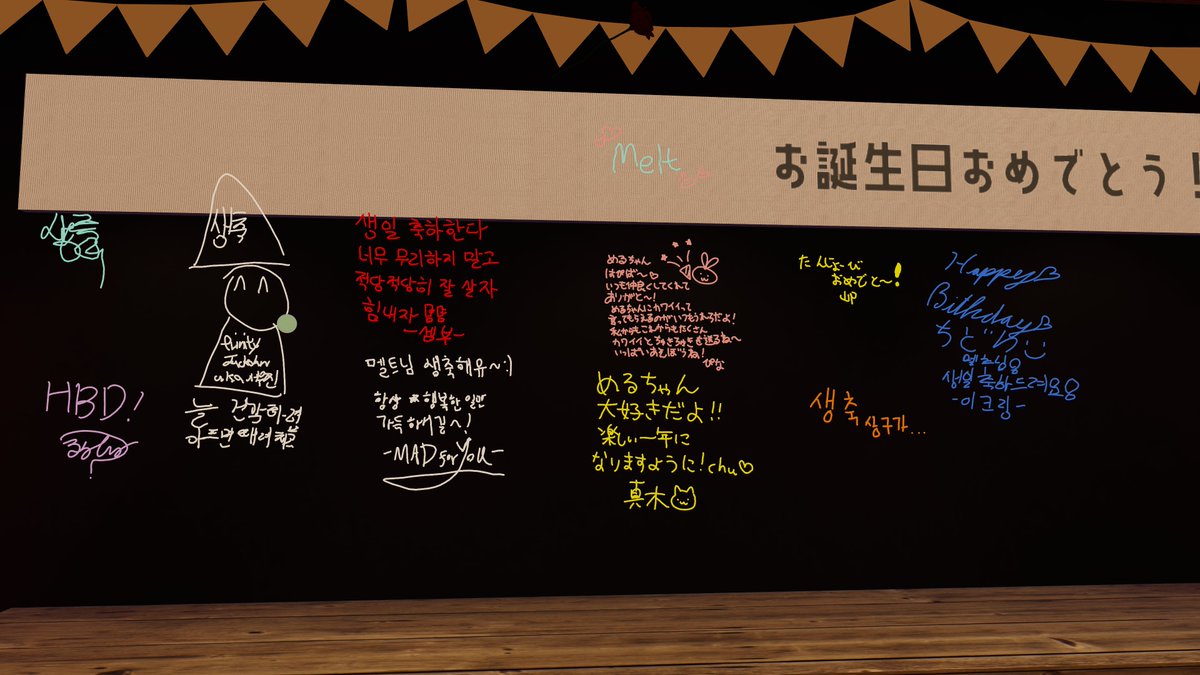 Melt
お誕生日おめでとう!
생축
늘 건강하고
아프면 때려
HBD!
생일 축하한다
너무 무리하지 말고
적당적당히 잘 살자
힘내자
멜트님 생축해유~:)
항상 행복한 일만
가득하길~!
-MAD for You-
めるちゃん
はぴば~♡
いつも仲良くしてくれて
ありがと~!
めるちゃんにカワイイって
言ってもらえるのがいつもうれうだよ!
カワイイとちゅきちゅきを送るね~
いっぱいあそぼうね!
ぴな
めるちゃん
大好きだよ!!
楽しい一年に
なりますように!chu♡
真木
たんじょーび
おめでと~!
생축
Happy
Bithday
멜트님
생일 축하드려요
-이크림-